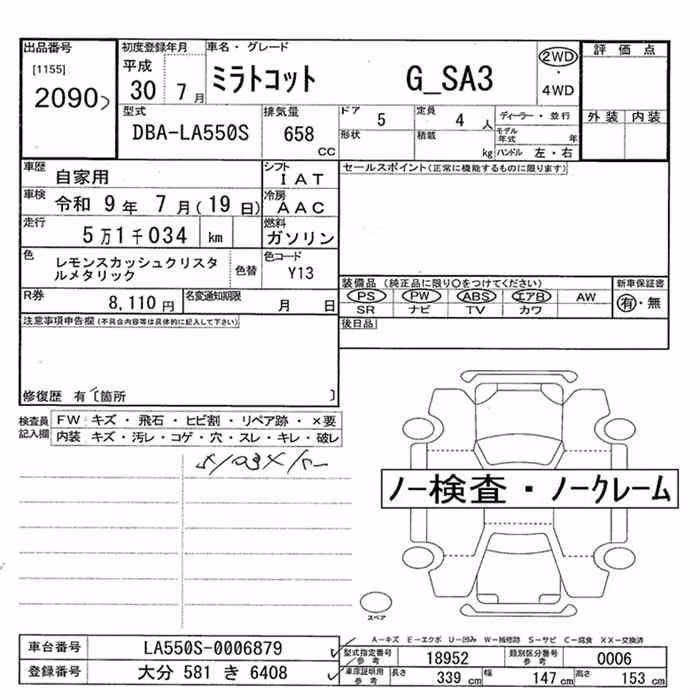 出品番号
[1155]
2090
初度登録年月
平成
30 7月
車名・グレード
ミラトコット G_SA3
2WD
・
4WD
評価点
外装 内装
型式
DBA-LA550S
排気量
658
CC
ドア 5
形状
定員 4 人
積載 kg
ディーラー・並行
モデル年式 年
ハンドル 左・右
車歴 自家用
シフト IAT
車検 令和 9年 7月(19日)
冷房 AAC
走行 5万1千034 km
燃料 ガソリン
色 レモンスカッシュクリスタ
ルメタリック
色替
色コード
Y13
R券 8,110円
名変通知期限 月 日
セールスポイント(正常に機能するものに限ります)
装備品(純正品に限り〇をつけてください)
PS PW ABS エアB AW
SR ナビ TV カワ
新車保証書
有・無
後日品
注意事項申告欄(不具合内容等は具体的に記入して下さい)
修復歴 有〔箇所 〕
検査員
記入欄
FW キズ・飛石・ヒビ割・リペア跡・×要
内装 キズ・汚レ・コゲ・穴・スレ・キレ・破レ
ノー検査・ノークレーム
スペア
A-キズ E-エクボ U-凹み W-補修跡 S-サビ C-腐食 XX-交換済
車台番号 LA550S-0006879
登録番号 大分 581 き 6408
型式指定番号
参考
18952
類別区分番号
参考
0006
車庫証明用
参考
長さ 339 cm
幅 147 cm
高さ 153 cm